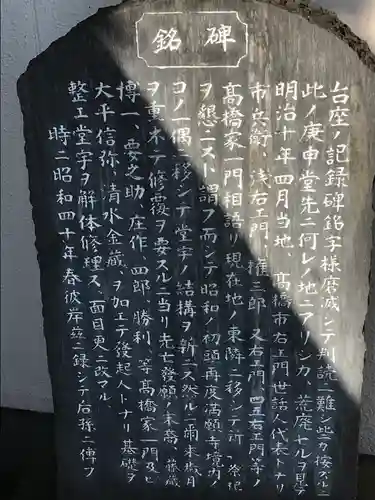 碑銘
台座ノ記録碑銘字様磨滅シテ判読シ難シ此ニ按ズルニ
此ノ庚申堂先ニ何レノ地ニアリシカ、荒廃セルヲ見テ
明治十年四月当地、髙橋市右エ門世話人代表トナリ
市兵衛、浅右エ門、権三郎、又右エ門、四五右エ門等ノ
髙橋家一門相語リ現在地ノ東隣ニ移シテ所
ヲ懇ニスト謂フ而シテ昭和ノ初頭再度満願寺境内
コノ一偶ニ移シテ堂宇ノ結構ヲ新ニス然ルニ爾来歳月
ヲ重ネテ修覆ヲ要スルニ当リ先亡發願ノ末裔、藤蔵
博一、要之助、庄作、四郎、勝利、等髙橋家一門及ヒ
大平信弥、清水金蔵、ヲ加エテ後起人トナリ基礎ヲ
整エ堂宇ヲ解体修理ス、面目更ニ改マル
時ニ昭和四十年春彼岸茲ニ録シテ后孫ニ傳フ